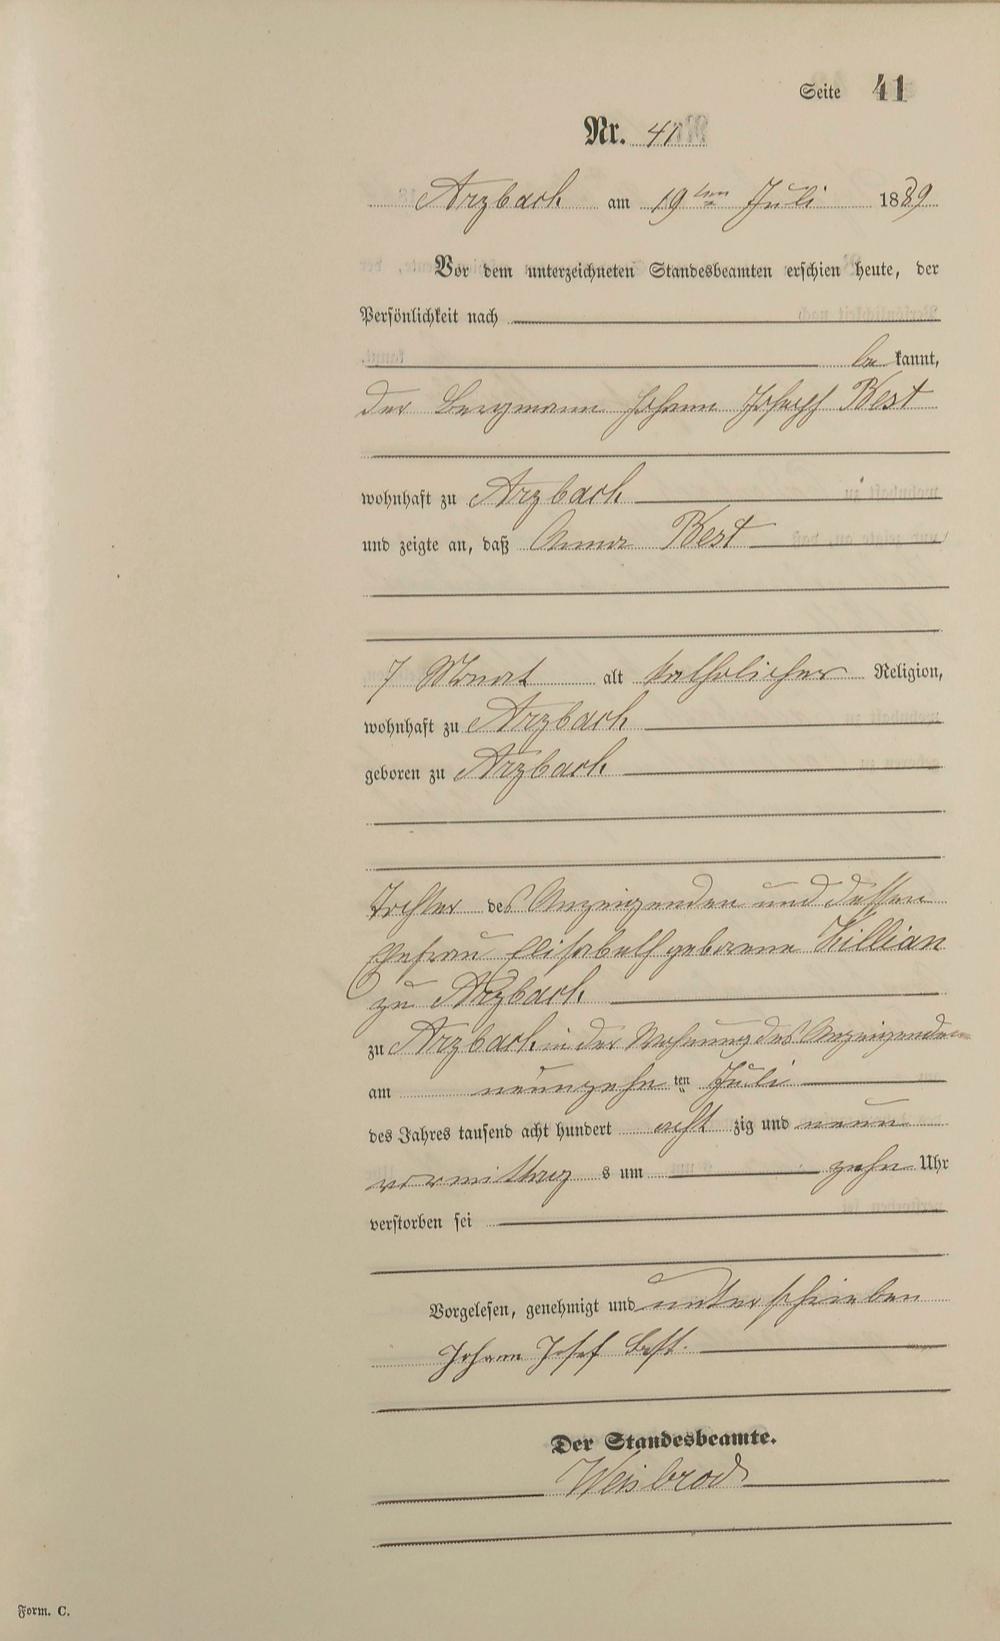 Seite 41
Nr. 41
Arzbach am 19ten Juli 1889
Vor dem unterzeichneten Standesbeamten erschien heute, der
Persönlichkeit nach
be kannt,
der Bergmann Johann Joseph Best
wohnhaft zu Arzbach
und zeigte an, daß Anna Best
7 Monat alt katholischer Religion,
wohnhaft zu Arzbach
geboren zu Arzbach
Tochter des Anzeigenden und dessen
Ehefrau Elisabeth geborene Killian
zu Arzbach
zu Arzbach in der Wohnung des Anzeigenden
am neunzehn ten Juli
des Jahres tausend acht hundert acht zig und neun
vormittag s um zehn Uhr
verstorben sei
Vorgelesen, genehmigt und unterschrieben
Johann Josef Best.
Der Standesbeamte.
Weisbrod
Form. C.